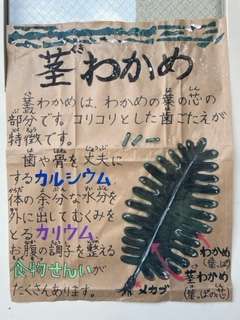 茎わかめ
茎わかめは、わかめの葉の芯の
部分です。コリコリとした歯ごたえが
特徴です。
歯や骨を丈夫に
するカルシウム
体の余分な水分を
外に出してむくみを
とるカリウム
お腹の調子を整える
食物せんいが
たくさんあります。
わかめ
(葉っぱ)
茎わかめ
(葉っぱの芯)
メカブ